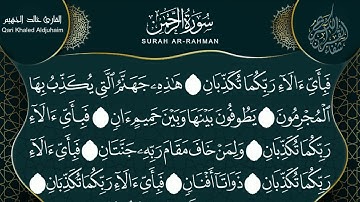 القارئ خالد الجهيم
Qari Khaled Aldjuhaim
سُورَةُ الرَّحْمَٰن
SURAH AR-RAHMAN
فَبِأَيِّ ءَالَآءِ رَبِّكُمَا تُكَذِّبَانِ هَٰذِهِۦ جَهَنَّمُ ٱلَّتِي يُكَذِّبُ بِهَا
ٱلْمُجْرِمُونَ يَطُوفُونَ بَيْنَهَا وَبَيْنَ حَمِيمٍ ءَانٍ فَبِأَيِّ ءَالَآءِ
رَبِّكُمَا تُكَذِّبَانِ وَلِمَنْ خَافَ مَقَامَ رَبِّهِۦ جَنَّتَانِ فَبِأَيِّ ءَالَآءِ
رَبِّكُمَا تُكَذِّبَانِ ذَوَاتَآ أَفْنَانٍ فَبِأَيِّ ءَالَآءِ رَبِّكُمَا تُكَذِّبَانِ